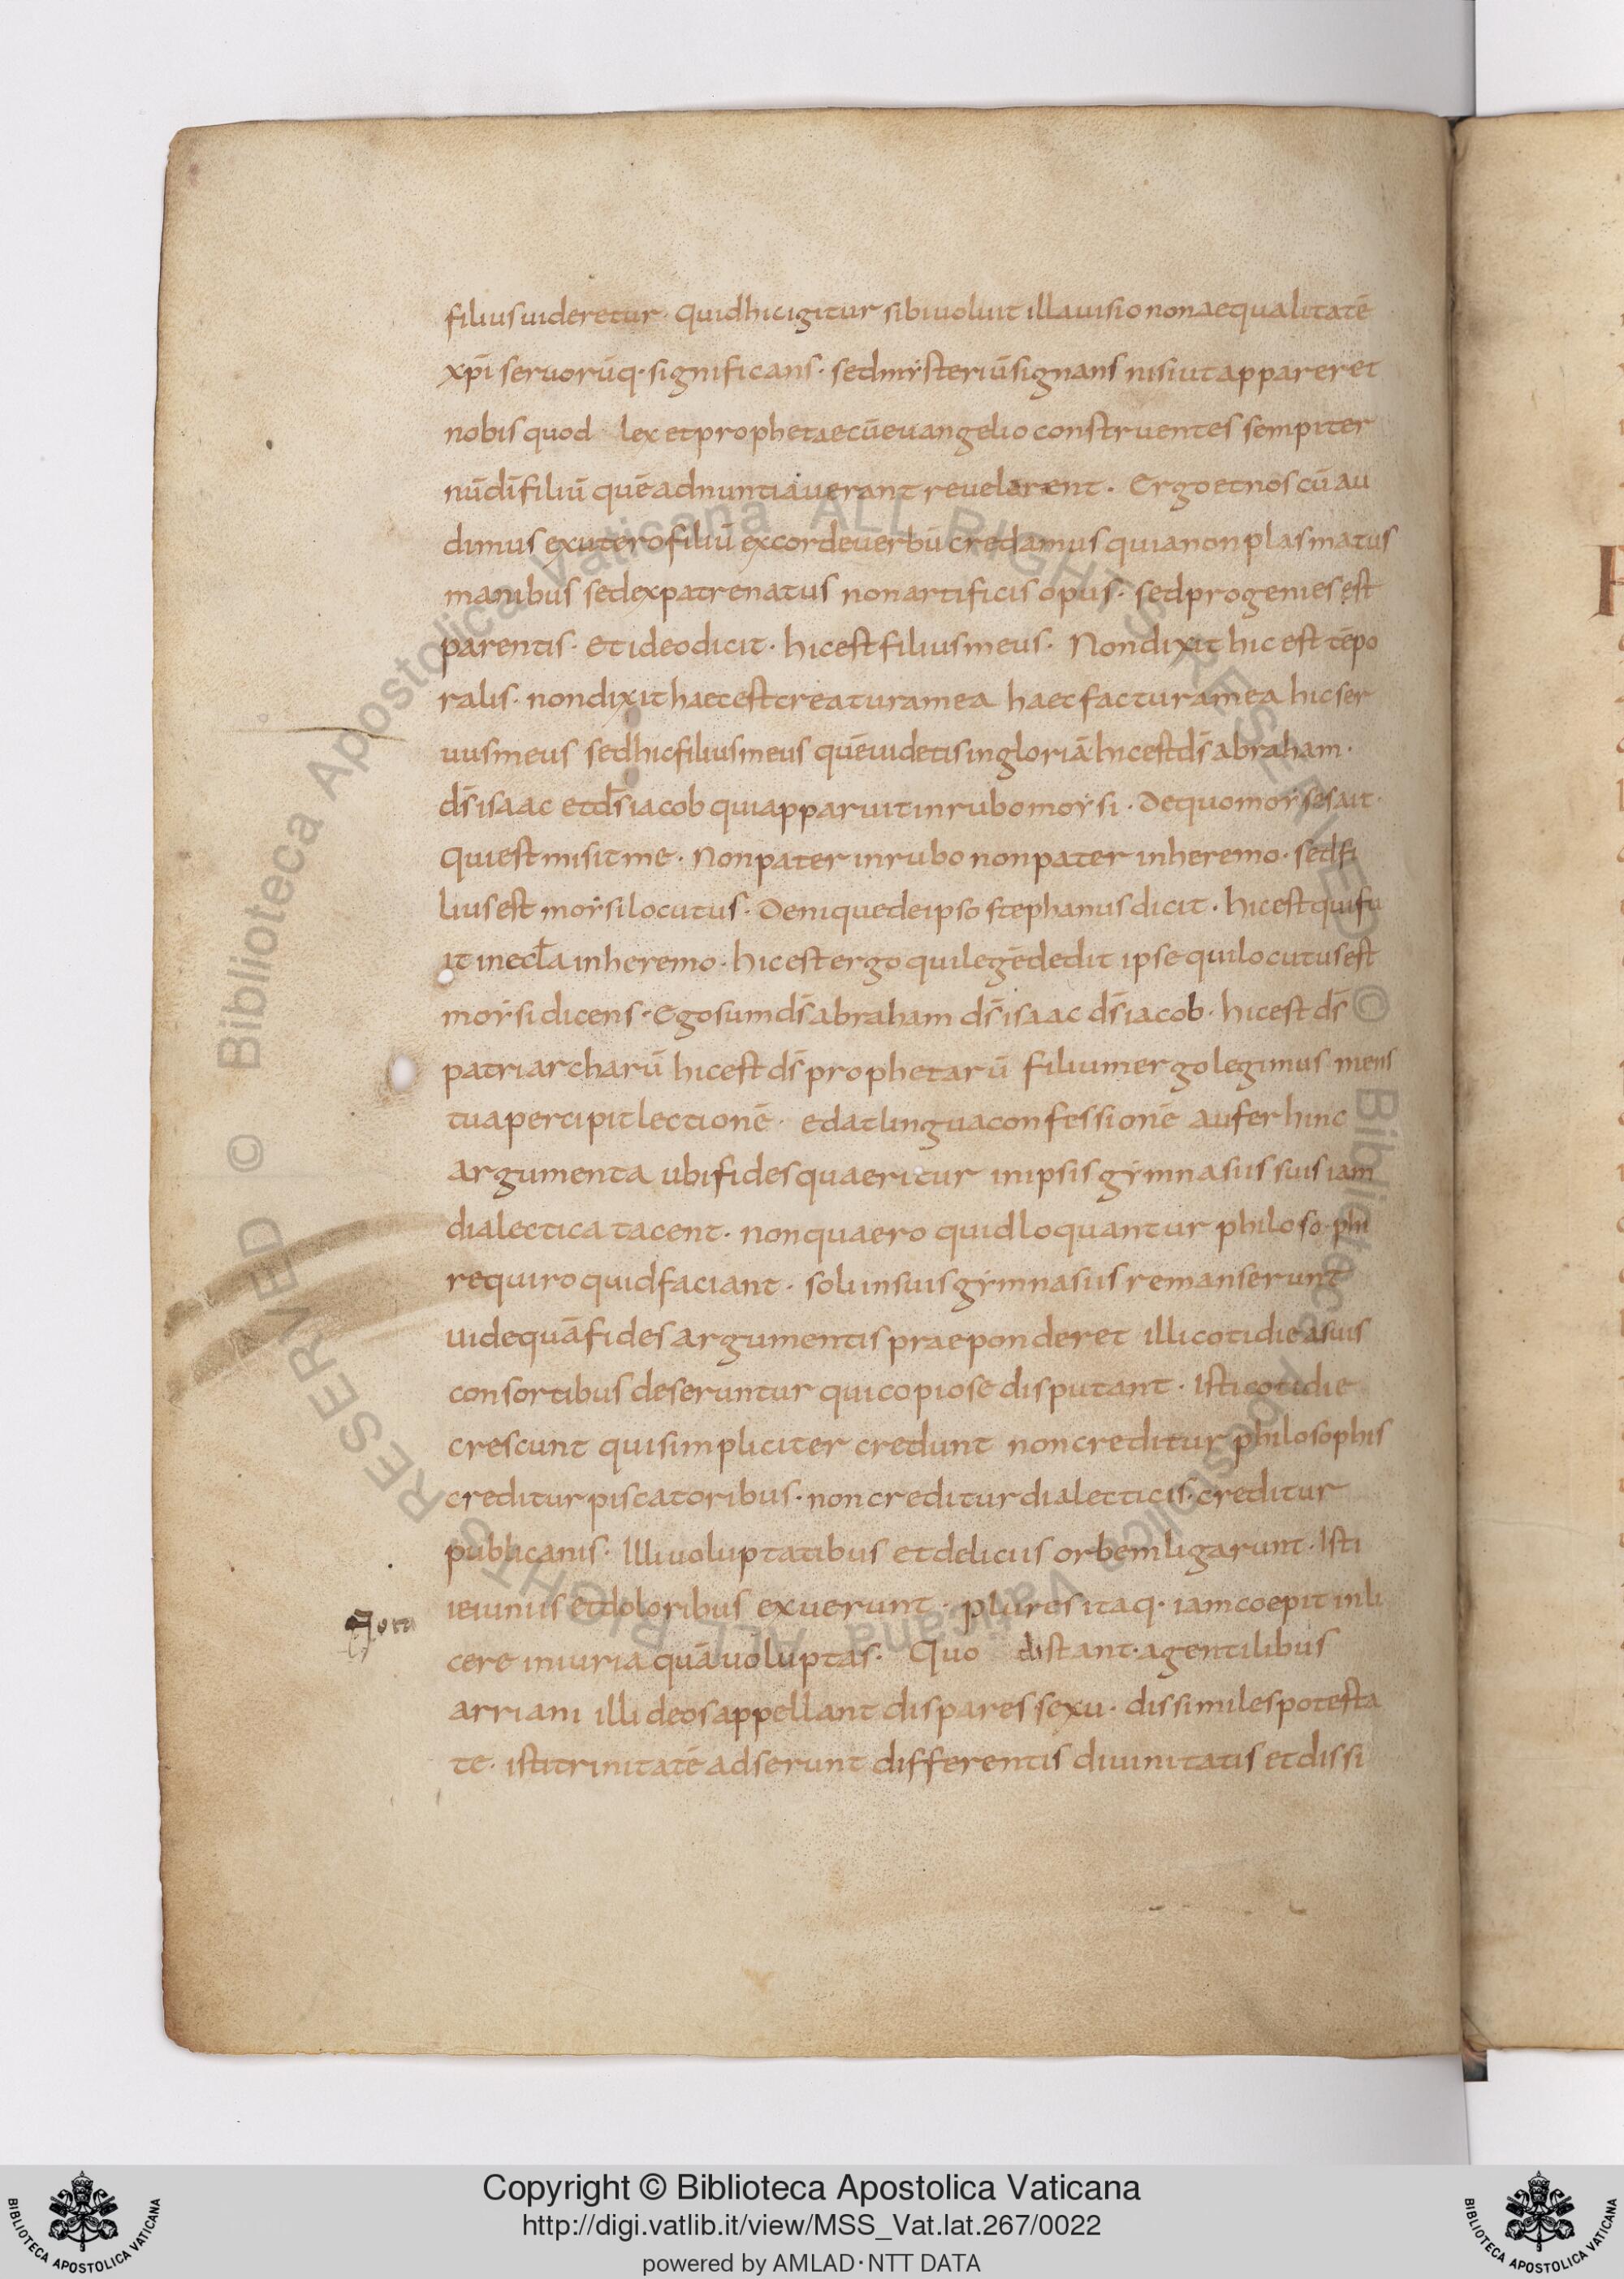 filius uideretur · Quid hic igitur sibi uoluit illa uisio non aequalitatē
xp̄i seruorūq · significans · sed mẏsteriū signans nisi ut appareret
nobis quod lex et prophetae cū euangelio construentes sempiter
nū dī filiū quē adnuntiauerant reuelarent · Ergo et nos cū au
dimus ex utero filiū ex corde uerbū credamus quia non plasmatus
manibus sed ex patre natus non artificis opus · sed progenies est
parentis · et ideo dicit · hic est filius meus · Non dixit hic est tēpo
ralis · non dixit haec est creatura mea haec factura mea hic ser
uus meus sed hic filius meus quē uidetis in gloriā · hic est ds̄ abraham ·
ds̄ isaac et ds̄ iacob qui apparuit in rubo moẏsi · De quo moẏses ait ·
Qui est misit me · Non pater in rubo non pater in heremo · sed fi
lius est moẏsi locutus · Denique de ipso stephanus dicit · hic est qui fu
it in eccl̄a in heremo · hic est ergo qui legē dedit ipse qui locutus est
moẏsi dicens · Ego sum ds̄ abraham ds̄ isaac ds̄ iacob · hic est ds̄
patriarcharū hic est ds̄ prophetarū filium ergo legimus mens
tua percipit lectionē · edat lingua confessionē aufer hinc
argumenta ubi fides quaeritur in ipsis gẏmnasiis suis iam
dialectica tacent · non quaero quid loquantur philosophi
requiro quid faciant · soli in suis gẏmnasiis remanserunt
uide quā fides argumentis praeponderet illi cotidie a suis
consortibus deseruntur qui copiose disputant · Isti cotidie
crescunt qui simpliciter credunt non creditur philosophis
creditur piscatoribus · non creditur dialecticis · creditur
publicanis · Illi uoluptatibus et deliciis orbem ligarunt · Isti
ieiuniis et doloribus exuerunt · plures itaq · iam coepit inli
cere iniuria quā uoluptas · Quo distant · a gentilibus
arriani illi deos appellant dispares sexu · dissimiles potesta
te · isti trinitatē adserunt differentis diuinitatis et dissi
Copyright © Biblioteca Apostolica Vaticana
http://digi.vatlib.it/view/MSS_Vat.lat.267/0022
powered by AMLAD · NTT DATA
BIBLIOTECA APOSTOLICA VATICANA
BIBLIOTECA APOSTOLICA VATICANA
© Biblioteca Apostolica Vaticana ALL RIGHTS RESERVED
© Biblioteca Apostolica Vaticana ALL RIGHTS RESERVED